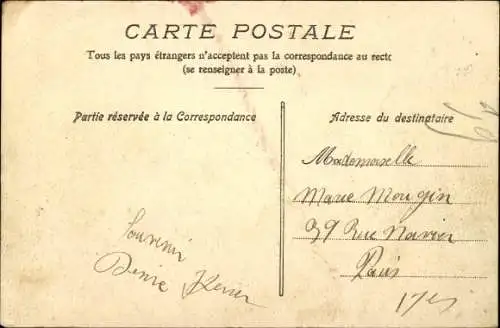 CARTE POSTALE
Tous les pays étrangers n'acceptent pas la correspondance au recto
(se renseigner à la poste)
Partie réservée à la Correspondance
Adresse du destinataire
Mademoiselle
Marie Mougin
39 Rue Navier
Paris
17es
Souvenir